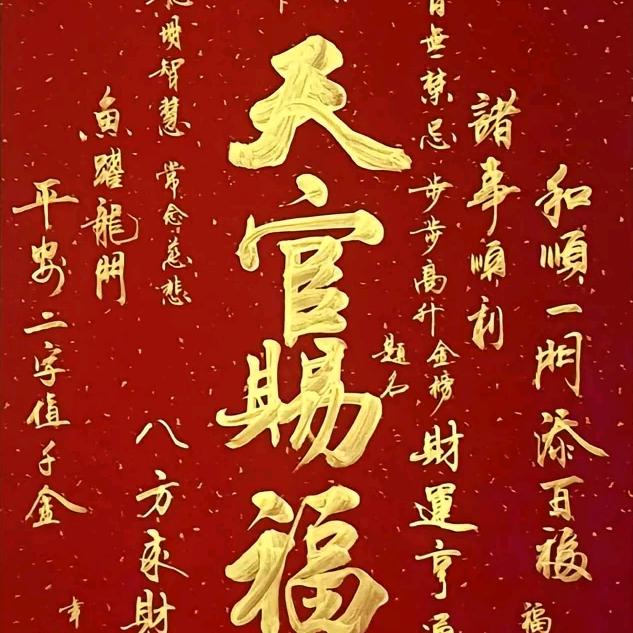 和順一門添百福
福
諸事順利
百無禁忌
步步高升
金榜
題名
財運亨通
天官賜福
智慧
常念慈悲
八方來財
魚躍龍門
平安二字值千金